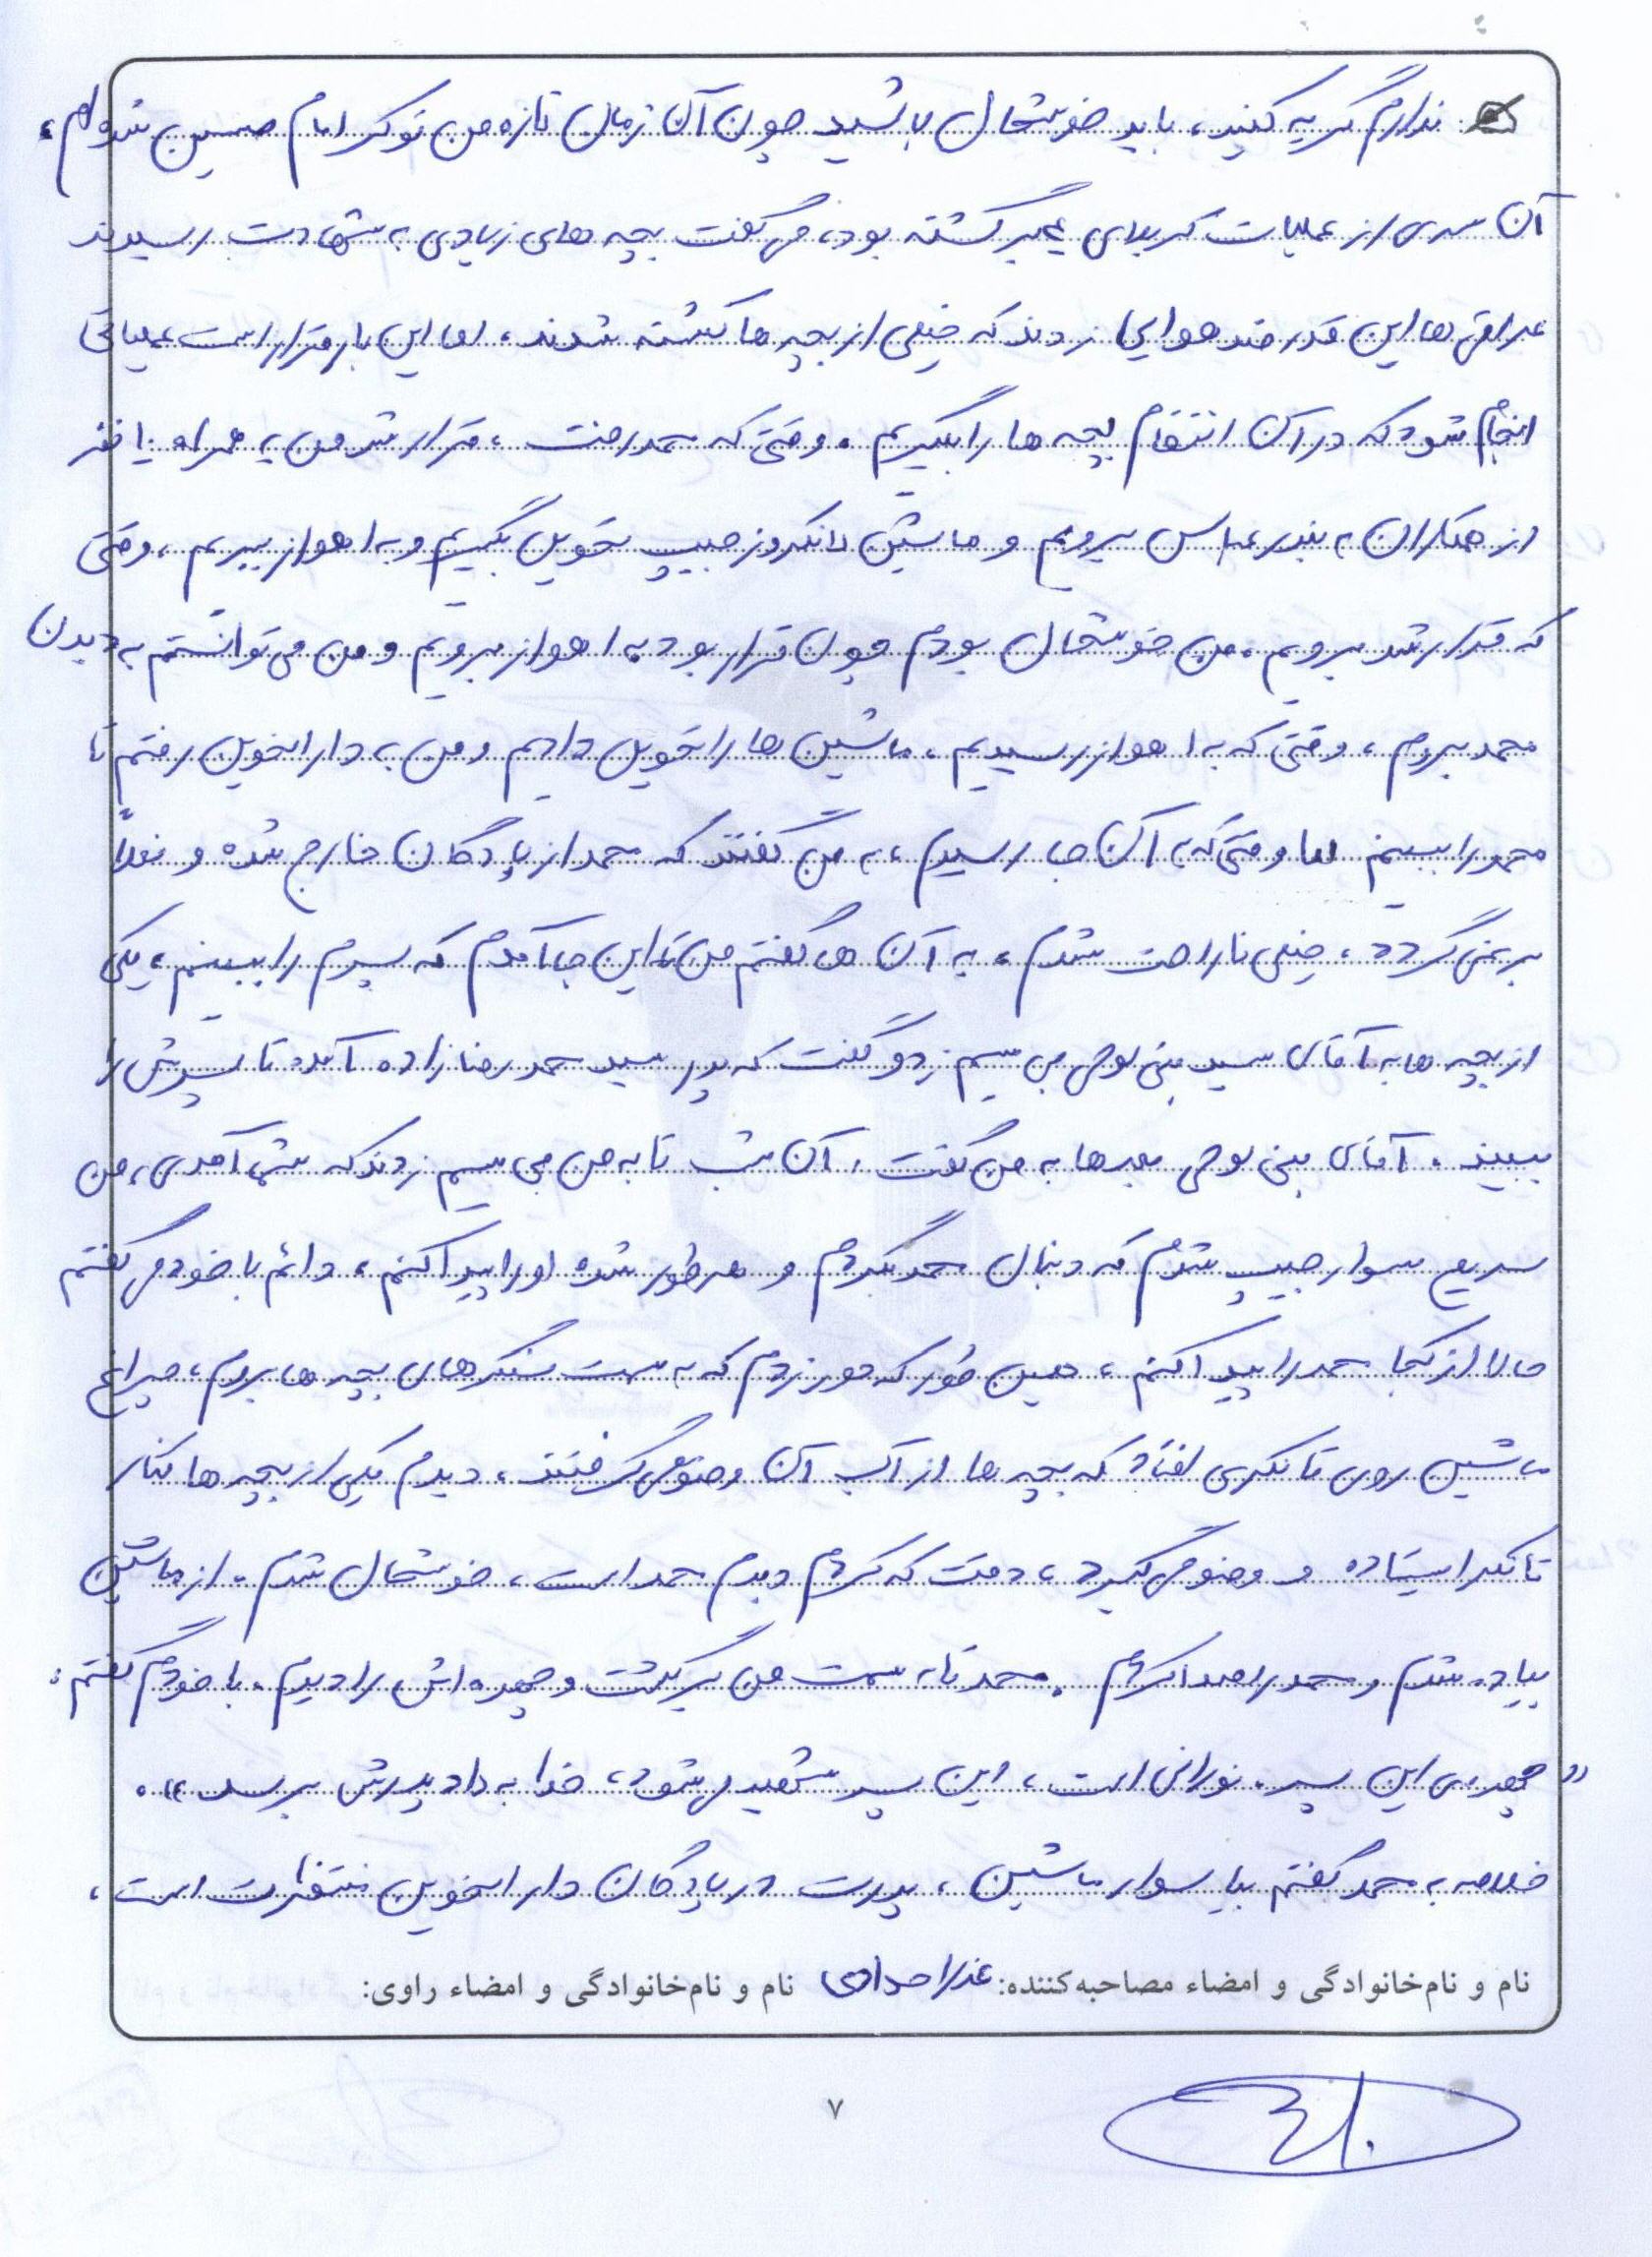 ندارم گریه کنید، باید خوشحال باشید چون آن زمان تازه من نوکر امام حسین شده‌ام،
آن سری از عملیات کربلای ۴ برگشته بود، می‌گفت بچه های زیادی به شهادت رسیدند
عراقی ها این قدر ضد هوایی زدند که خیلی از بچه ها کشته شدند، اما این بار قرار است عملیاتی
انجام شود که در آن انتقام بچه ها را بگیریم. وقتی که محمد رفت، قرار شد من به همراه ۱۰ نفر
از همکاران به بندرعباس برویم و ماشین لندکروز جیپ تحویل بگیریم و به اهواز ببریم، وقتی
که قرار شد برویم، من خوشحال بودم چون قرار بود به اهواز برویم و من می‌توانستم به دیدن
محمد بروم، وقتی که به اهواز رسیدیم، ماشین ها را تحویل دادیم و من به دارخوین رفتم تا
محمد را ببینم اما وقتی که به آن جا رسیدم، به من گفتند که محمد از پادگان خارج شده و فعلاً
بر نمی‌گردد، خیلی ناراحت شدم، به آن ها گفتم من تا این جا آمدم که پسرم را ببینم، یکی
از بچه ها به آقای سید بنی لوحی بی سیم زد و گفت که پدر سید محمد رضازاده آمده تا پسرش را
ببیند. آقای بنی لوحی بعدها به من گفت، آن شب تا به من بی سیم زدند که شما آمدی، من
سریع سوار جیپ شدم که دنبال محمد بگردم و هر طور شده او را پیدا کنم، دائم با خود می‌گفتم
حالا از کجا محمد را پیدا کنم، همین طور که دور زدم که به سمت سنگرهای بچه ها بروم، چراغ
ماشین روی تانکری افتاد که بچه ها از آب آن وضو می‌گرفتند، دیدم یکی از بچه ها کنار
تانکر ایستاده و وضو می‌گیرد، دقت که کردم دیدم محمد است، خوشحال شدم. از ماشین
پیاده شدم و محمد را صدا کردم. محمد تا به سمت من برگشت و چهره اش را دیدم. با خودم گفتم:
«چهره‌ی این پسر، نورانی است، این پسر شهید می‌شود، خدا به داد پدرش برسد».
خلاصه به محمد گفتم بیا سوار ماشین، پدرت در پادگان دارخوین منتظرت است،
نام و نام‌خانوادگی و امضاء مصاحبه‌کننده: نام و نام‌خانوادگی و امضاء راوی:
۷